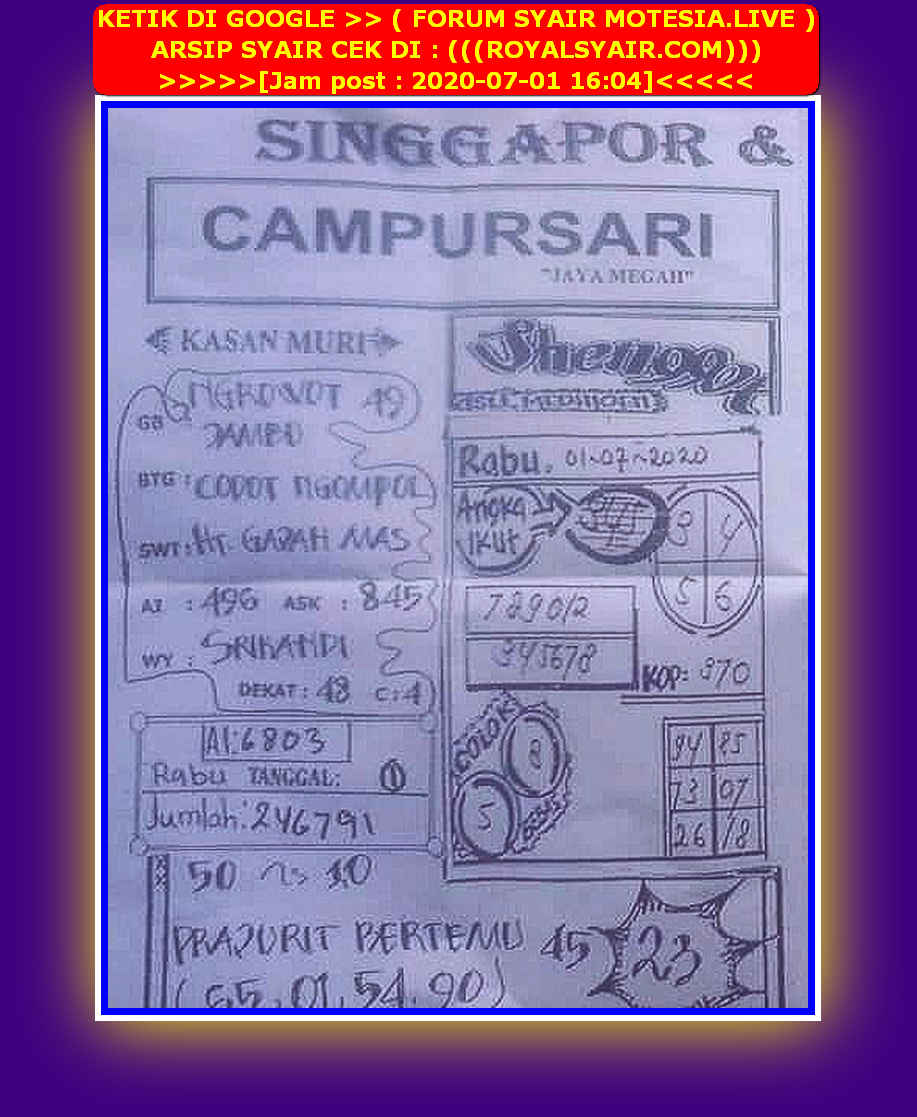 KETIK DI GOOGLE >> ( FORUM SYAIR MOTESIA.LIVE )
ARSIP SYAIR CEK DI : (((ROYALSYAIR.COM)))
>>>>>[Jam post : 2020-07-01 16:04]<<<<<
SINGGAPOR &
CAMPURSARI
"JAYA MEGAH"
KASAN MURI
GB
49
JAMBU
BTG : CODOT NGOMPOL
SWT: HT. GAJAH MAS
AI : 496 ASK : 845
WY : SRIKANDI
DEKAT : 48 C : 4
AI: 6803
Rabu TANGGAL: 1
Jumlah: 246791
Rabu, 01-07-2020
Angka
Ikut
3 4
5 6
789012
345678
KOP: 370
COLOK
8
5
94 85
73 07
26 18
50 10
PRAJURIT BERTEMU 45 23
(65.01.54.90)